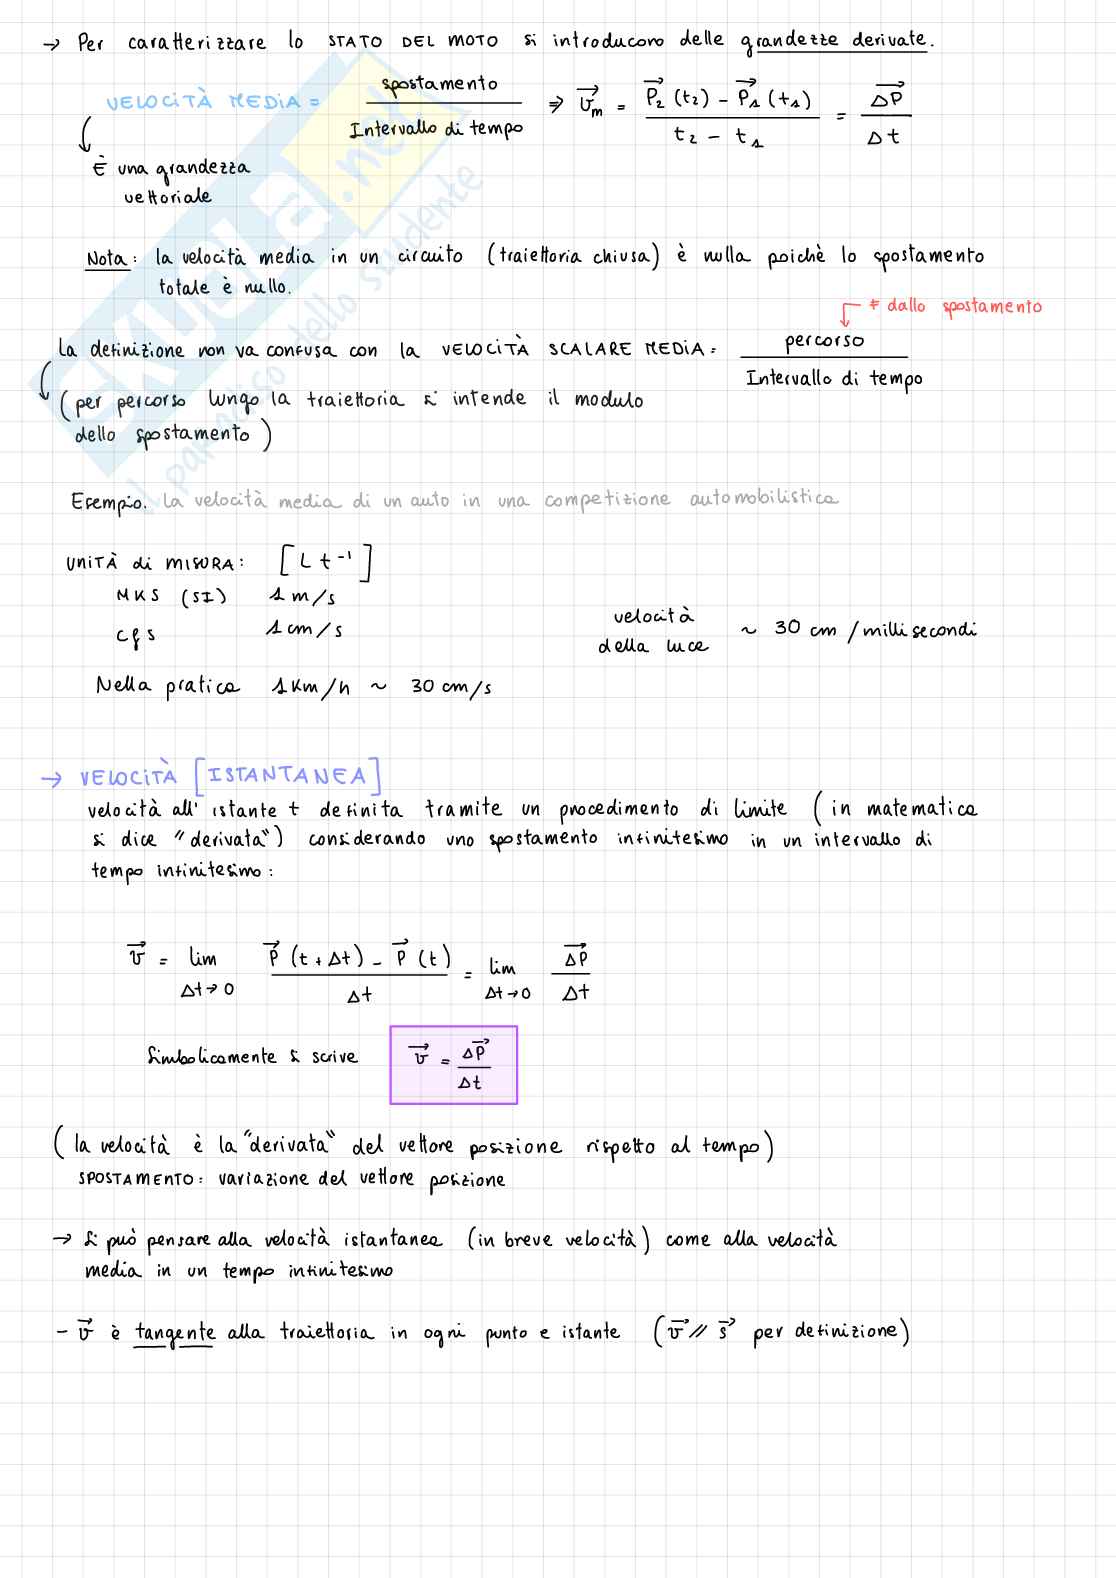 → Per caratterizzare lo STATO DEL MOTO si introducono delle grandezze derivate.
VELOCITÀ MEDIA = spostamento / Intervallo di tempo ⇒ v⃗m = (P⃗2 (t2) - P⃗1 (t1)) / (t2 - t1) = ΔP⃗ / Δt
È una grandezza
vettoriale
Nota: la velocità media in un circuito (traiettoria chiusa) è nulla poichè lo spostamento
totale è nullo.
≠ dallo spostamento
La definizione non va confusa con la VELOCITÀ SCALARE MEDIA = percorso / Intervallo di tempo
(per percorso lungo la traiettoria si intende il modulo
dello spostamento)
Esempio. La velocità media di un auto in una competizione automobilistica
UNITÀ di MISURA: [L t⁻¹]
MKS (SI) 1 m/s
cgs 1 cm/s
velocità
della luce ~ 30 cm/millisecondi
Nella pratica 1 Km/h ~ 30 cm/s
→ VELOCITÀ [ISTANTANEA]
velocità all' istante t definita tramite un procedimento di limite (in matematica
si dice "derivata") considerando uno spostamento infinitesimo in un intervallo di
tempo infinitesimo:
v⃗ = lim Δt→0 (P⃗ (t+Δt) - P⃗ (t)) / Δt = lim Δt→0 ΔP⃗ / Δt
Simbolicamente si scrive v⃗ = ΔP⃗ / Δt
(la velocità è la "derivata" del vettore posizione rispetto al tempo)
SPOSTAMENTO: variazione del vettore posizione
→ Si può pensare alla velocità istantanea (in breve velocità) come alla velocità
media in un tempo infinitesimo
- v⃗ è tangente alla traiettoria in ogni punto e istante (v⃗ // s⃗ per definizione)
SKUOLA.net
il paradiso dello studente